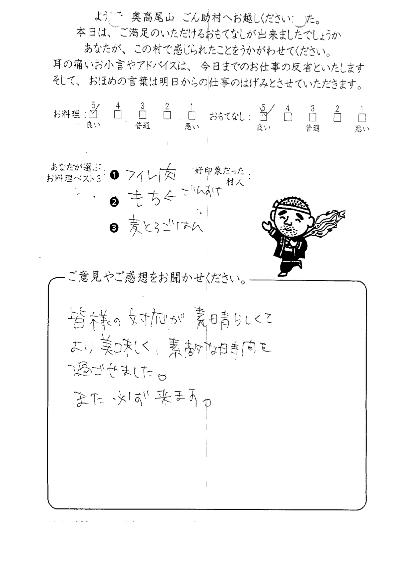 ようこそ 奥高尾山 ごん助村へお越しくださいました。
本日は、ご満足のいただけるおもてなしが出来ましたでしょうか
あなたが、この村で感じられたことをうかがわせてください。
耳の痛いお小言やアドバイスは、今日までのお仕事の反省といたします
そして、おほめの言葉は明日からの仕事のはげみとさせていただきます。
お料理: 5 4 3 2 1 おもてなし: 5 4 3 2 1
良い 普通 悪い 良い 普通 悪い
あなたが選ぶ
お料理ベスト3
❶ フィレ肉
❷ もちく
❸ 麦とろごはん
好印象だった
村人
ご意見やご感想をお聞かせください。
皆様の対応が素晴らしくて
より美味しく、素敵な時間を
過ごせました。
また必ず来ます。